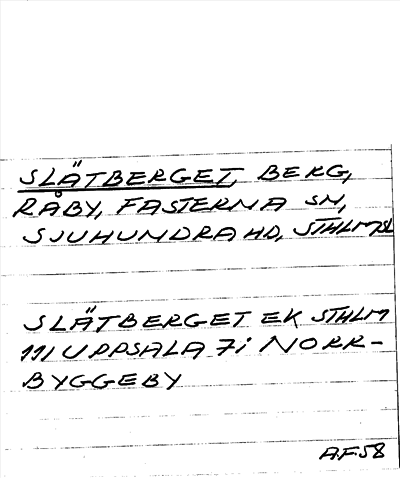 SLÄTBERGET, BERG,
RÅBY, FASTERNA SN,
SJUHUNDRA HD, STHLMSL
SLÄTBERGET EK STHLM
111 UPPSALA 7i NORR-
BYGGEBY
A.F.58